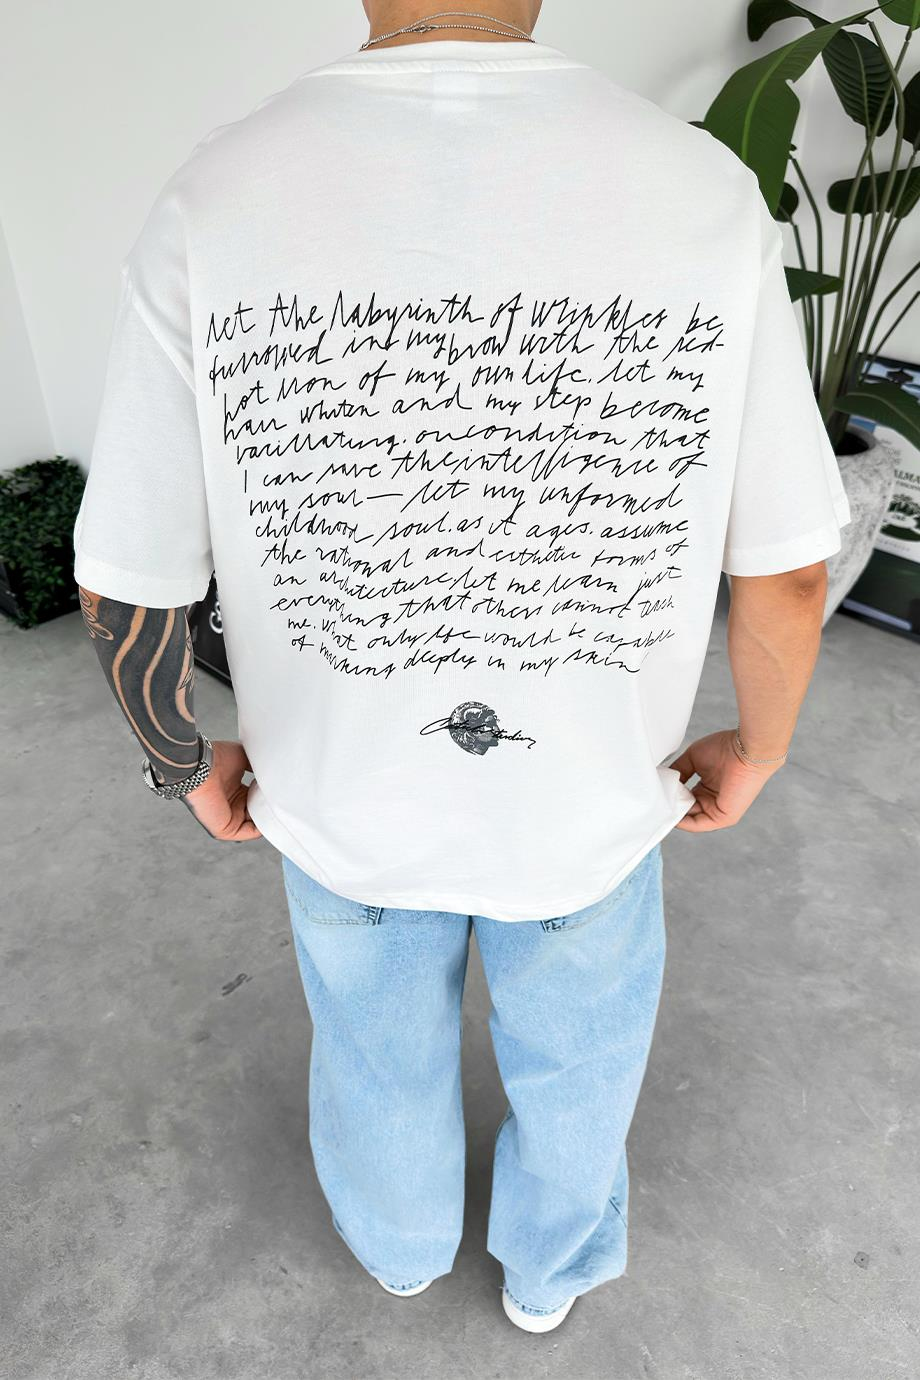 let the labyrinth of wrinkles be
furrowed in my brow with the red-
hot iron of my own life. let my
hair whiten and my step become
vacillating. on condition that
I can save the intelligence of
my soul— let my unformed
childhood soul. as it ages. assume
the rational and esthetic forms of
an architecture, let me learn just
everything that others cannot teach
me. what only life would be capable
of marking deeply in my skin